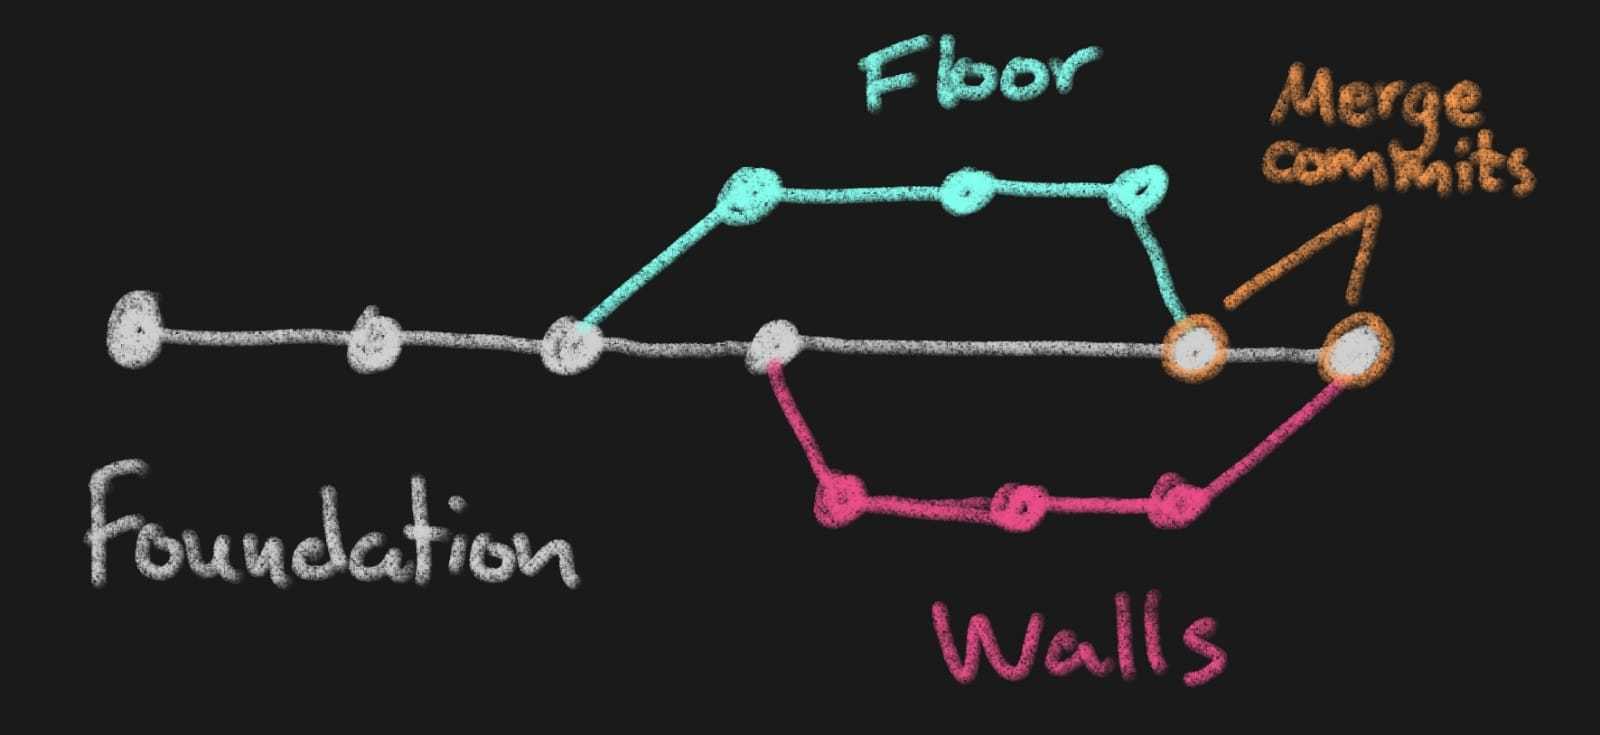 Floor
Merge
commits
Foundation
Walls